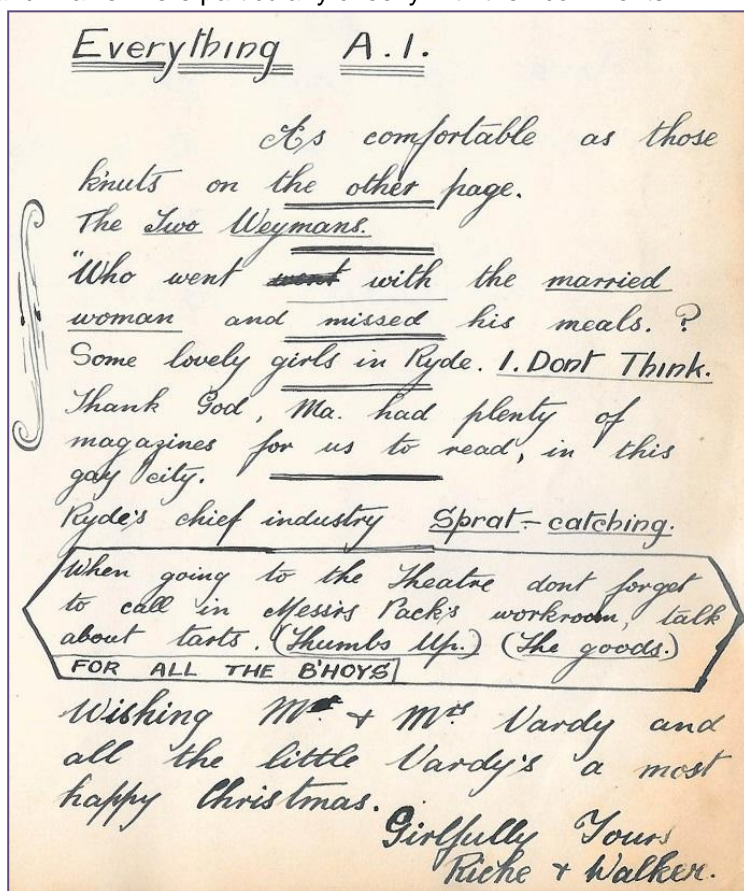 Everything A.1.
As comfortable as those
knuts on the other page.
The Two Weymans.
"Who went went with the married
woman and missed his meals. ?
Some lovely girls in Ryde. I. Dont Think.
Thank God, Ma. had plenty of
magazines for us to read, in this
gay city.
Ryde's chief industry Sprat-catching.
When going to the Theatre dont forget
to call in Messrs Pack's workroom, talk
about tarts. (Thumbs Up.) (The goods.)
FOR ALL THE B'HOYS
Wishing Mr & Mrs Vardy and
all the little Vardy's a most
happy Christmas.
Girlfully Yours
Riche & Walker.